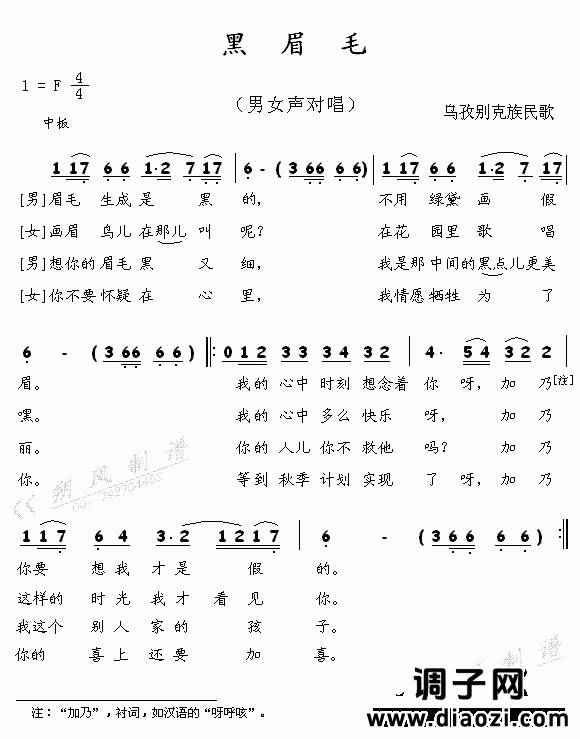 黑眉毛
1 = F 4/4
（男女声对唱）
乌孜别克族民歌
中板
1 1 7 6 6 1·2 7 1 7 6 - (3 66 6 6) 1 1 7 6 6 1·2 7 1 7
[男]眉毛 生成 是 黑 的， 不用 绿黛 画 假
[女]画眉 鸟儿 在那儿 叫 呢？ 在花 园里 歌 唱
[男]想你的 眉毛 黑 又 细， 我是那 中间的 黑点 儿更美
[女]你不要 怀疑 在 心 里， 我情愿 牺牲 为 了
6 - (3 66 6 6) 0 1 2 3 3 3 4 3 2 4· 5 4 3 2 2
眉。 我的 心中 时刻 想念着 你 呀，加 乃[注]
嘿。 我的 心中 多么 快乐 呀，加乃
丽。 你的 人儿 你不 救他 吗？加乃
你。 等到 秋季 计划 实现 了 呀，加乃
1 1 7 6 4 3·2 1 2 1 7 6 - (3 6 6 6 6)
你要 想我 才是 假 的。
这样的 时光 我才 看见 你。
我这个 别人 家的 孩 子。
你的 喜上 还要 加 喜。
<< 朔风制谱
朔风制谱
注：“加乃”，衬词，如汉语的“呀呼咳”。
调子网
www.diaozi.com